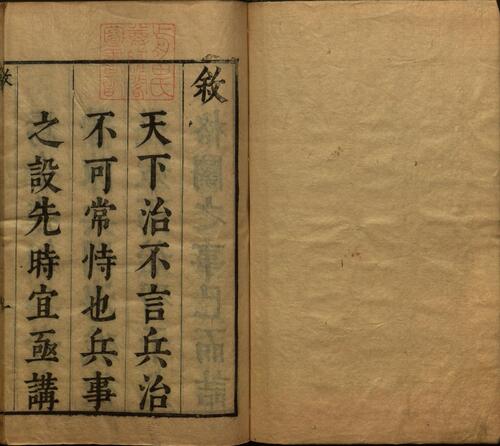 敘
天下治不言兵治
不可常恃也兵事
之設先時宜亟講